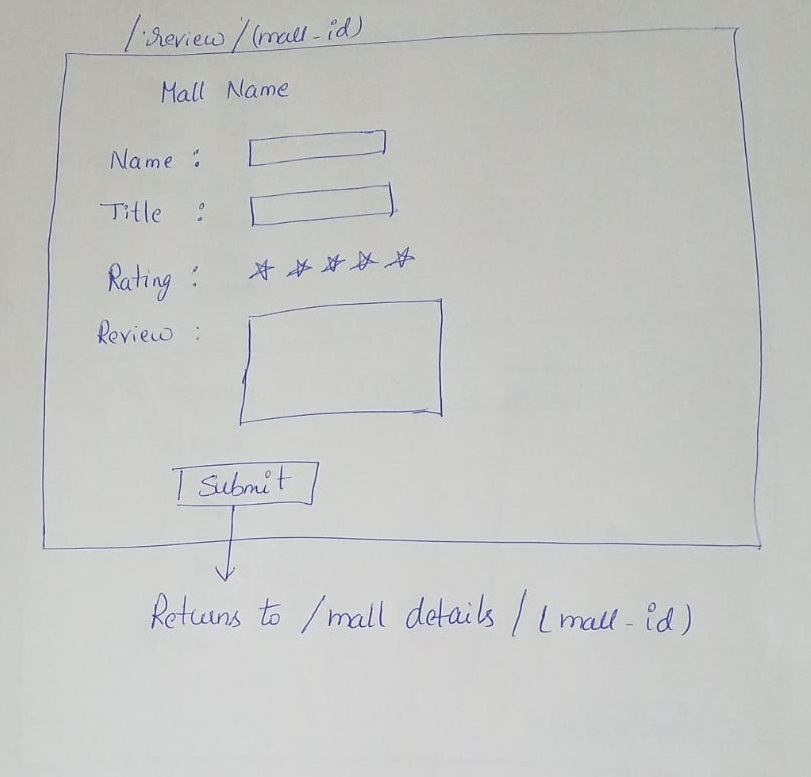 /review/(mall-id)
Mall Name
Name :
Title :
Rating :
Review :
Submit
Returns to /mall details/(mall-id)